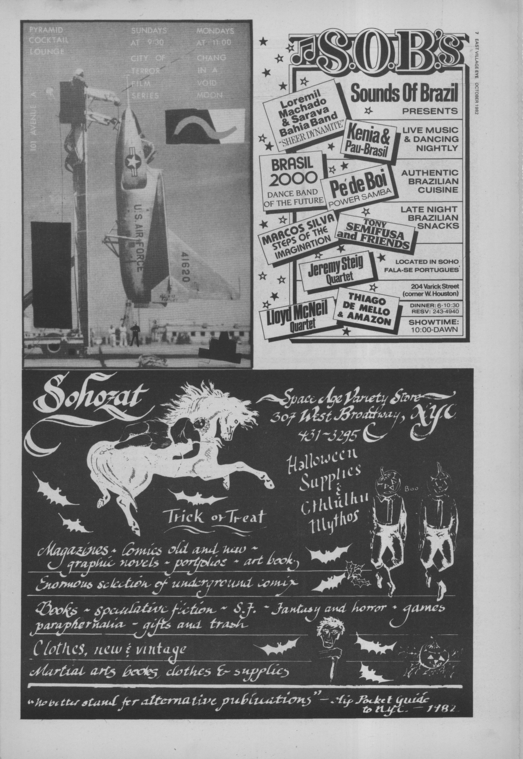 PYRAMID
COCKTAIL
LOUNGE
101 AVENUE
SUNDAYS
AT 9:30
CITY OF
TERROR
FILM
SERIES
MONDAYS
AT 11:00
CHANG
IN A
VOID
MOON
U.S. AIR FORCE
41620
S.O.B.'s
Sounds Of Brazil
PRESENTS
LIVE MUSIC
& DANCING
NIGHTLY
AUTHENTIC
BRAZILIAN
CUISINE
LATE NIGHT
BRAZILIAN
SNACKS
LOCATED IN SOHO
FALA-SE PORTUGUES
204 Varick Street
(corner W. Houston)
DINNER: 6-10:30
RESV: 243-4940
SHOWTIME:
10:00-DAWN
Loremil
Machado
& Sarava
Bahia Band
"SHEER DYNAMITE"
Kenia &
Pau-Brasil
BRASIL
2000
DANCE BAND
OF THE FUTURE
Pe' de Boi
POWER SAMBA
MARCOS SILVA
STEPS OF THE
IMAGINATION
TONY
SEMIFUSA
and FRIENDS
Jeremy Steig
Quartet
Lloyd McNeil
Quartet
THIAGO
DE MELLO
& AMAZON
EAST VILLAGE EYE, OCTOBER 1982
Sohozat
Space Age Variety Store
307 West Broadway, NYC
431-3295
Halloween
Supplies
&
Cthlulhu
Mythos
Boo
Trick or Treat
Magazines - comics old and new -
graphic novels - portfolios - art book
Enormous selection of underground comix
Books - speculative fiction - S.F. - Fantasy and horror - games
paraphernalia - gifts and trash
Clothes, new & vintage
Martial arts books, clothes & supplies
"no better stand for alternative publications" - Hip Pocket guide
to N.Y.C. - 1982